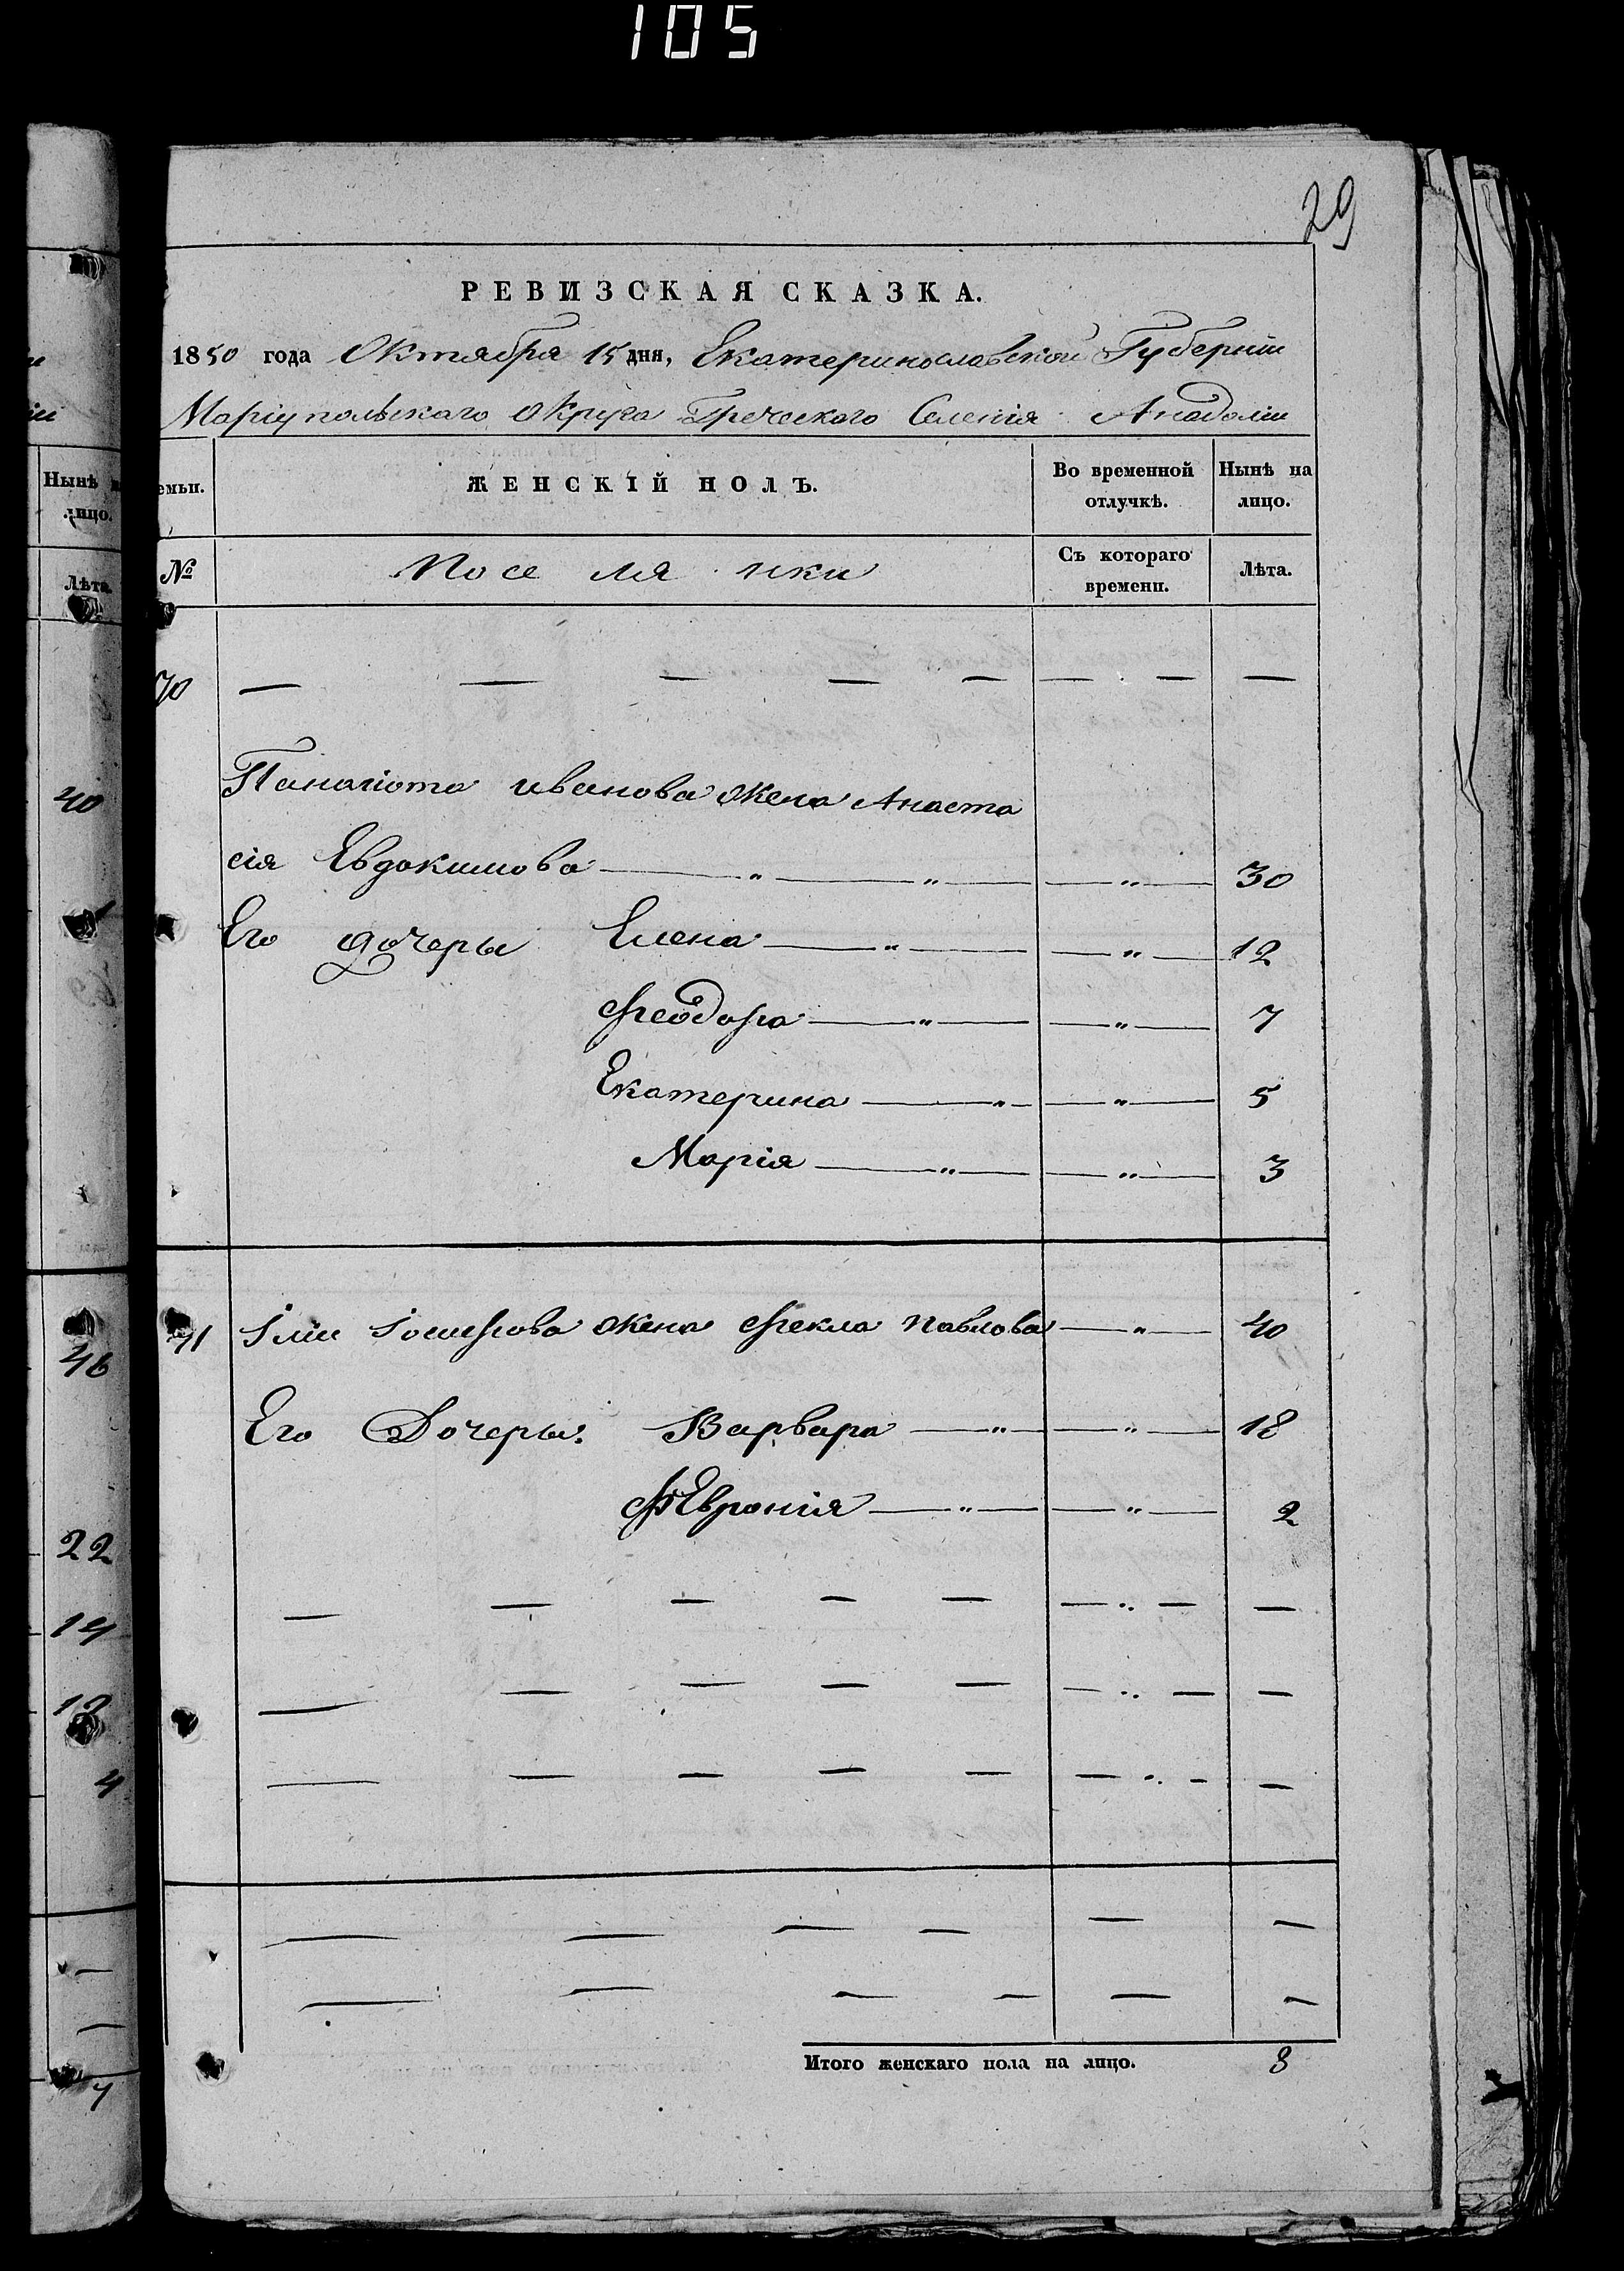 105
29
РЕВИЗСКАЯ СКАЗКА.
1850 года Октября 15 дня, Екатеринославской Губерніи
Маріупольскаго Округа Греческого Селенія Анадоліи
Нынѣ
лицо.
Лѣта.
емьи.
ЖЕНСКІЙ ПОЛЪ.
Во временной отлучкѣ.
Нынѣ на лицо.
№
Поселянки
Съ котораго времени.
Лѣта.
70 — — — — — — — —
Панагіота иванова жена Анаста
сія Евдокимова — „ — „ — — „ — 30
Его дочеры Елена — „ — — „ — 12
Феодора — „ — — „ — 7
Екатерина — „ — — „ — 5
Марія — „ — — „ — 3
71 Іліи жена Фекла Павлова — „ — 40
Его Дочеры: Варвара — „ — — „ — 18
ФЕвронія — „ — — „ — 2
— — — — — — „ — —
— — — — — — „ — —
— — — — — — „ — —
— — — — — —
— — — — — —
Итого женскаго пола на лицо. 8
40
46
22
14
12
4
—
—
7